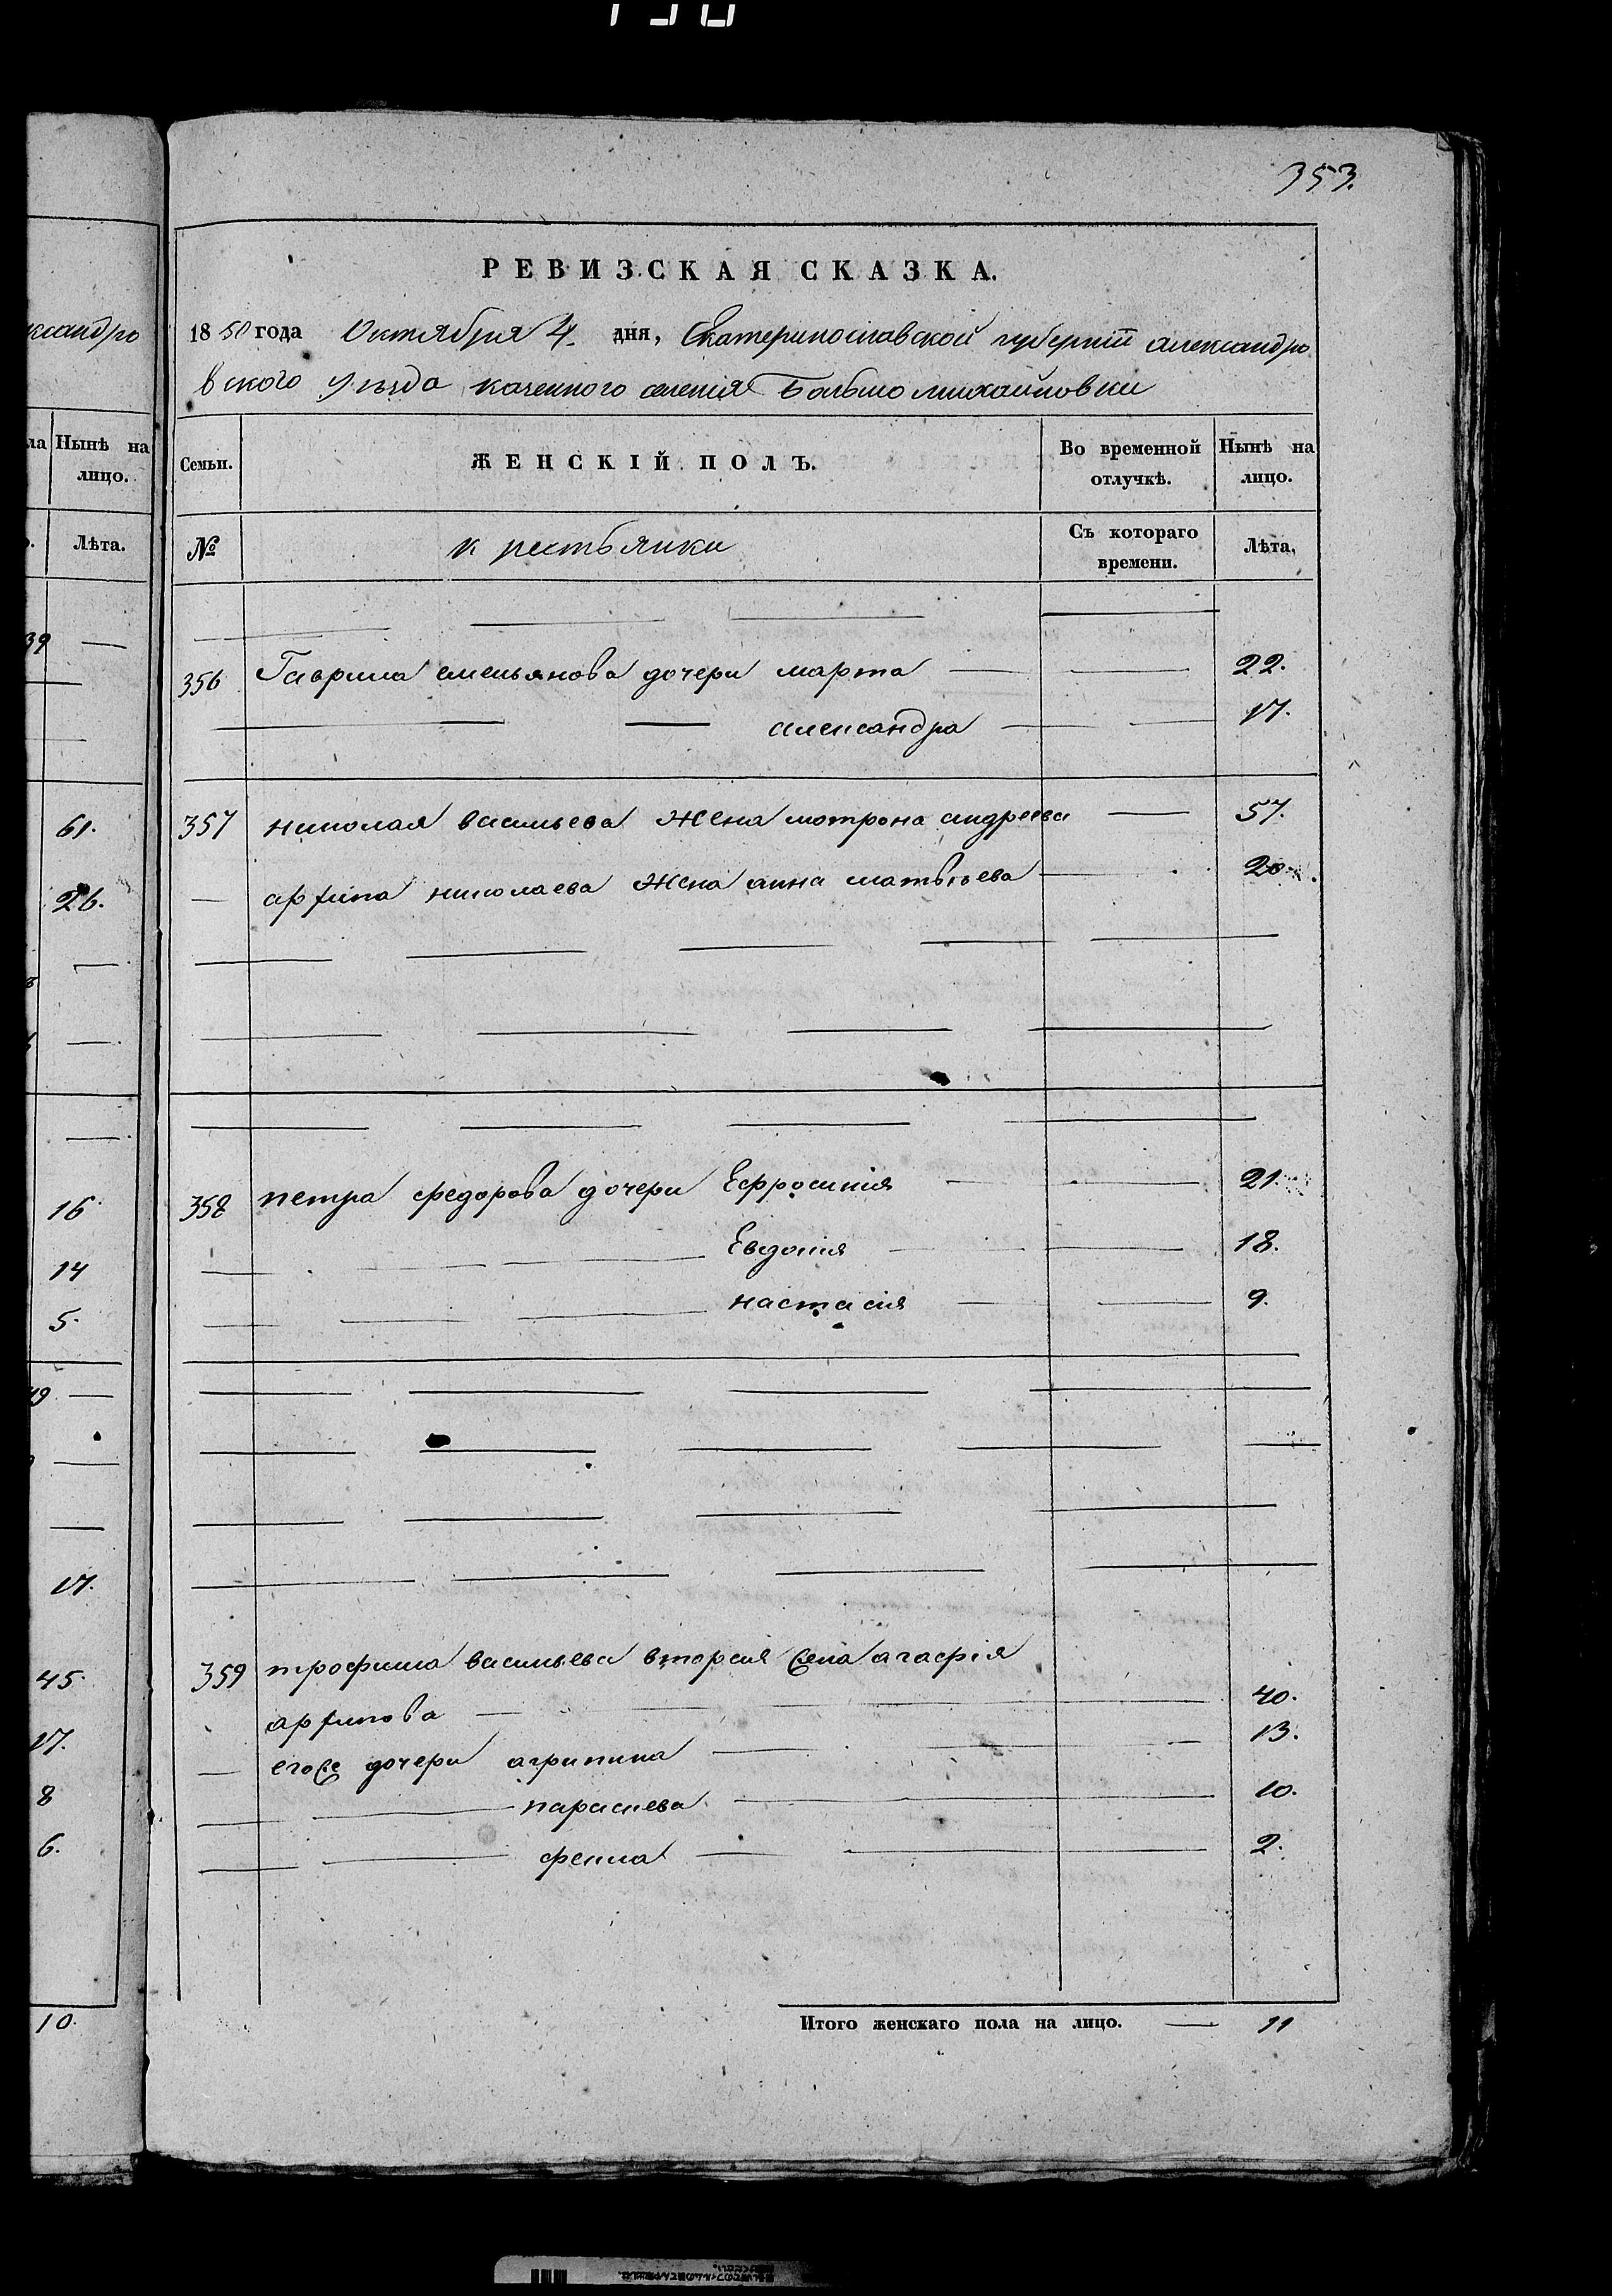 353.
РЕВИЗСКАЯ СКАЗКА.
1850 года Октября 4. дня, Екатеринославской губернiи александро
вского уѣзда казенного селенiя Большомихайловки
Семьи. ЖЕНСКІЙ ПОЛЪ. Во временной отлучкѣ. Нынѣ на лицо.
№ крестьянки Съ котораго времени. Лѣта.
356 Гаврила емельянова дочери марта 22.
александра 17.
357 николая васильева жена мотрона андреева 57.
архипа николаева жена анна матвѣева 20.
358 петра федорова дочери Ефросинiя 21.
Евдокия 18.
настасия 9.
359 трофима васильева вторая жена агафiя
архипова 40.
его же дочери агрипина 13.
параскева 10.
фекла 2.
Итого женскаго пола на лицо. 11
ксандро
ла Нынѣ на лицо.
Лѣта.
39
61.
26.
16
14
5.
49
17.
45.
17.
8
6.
10.